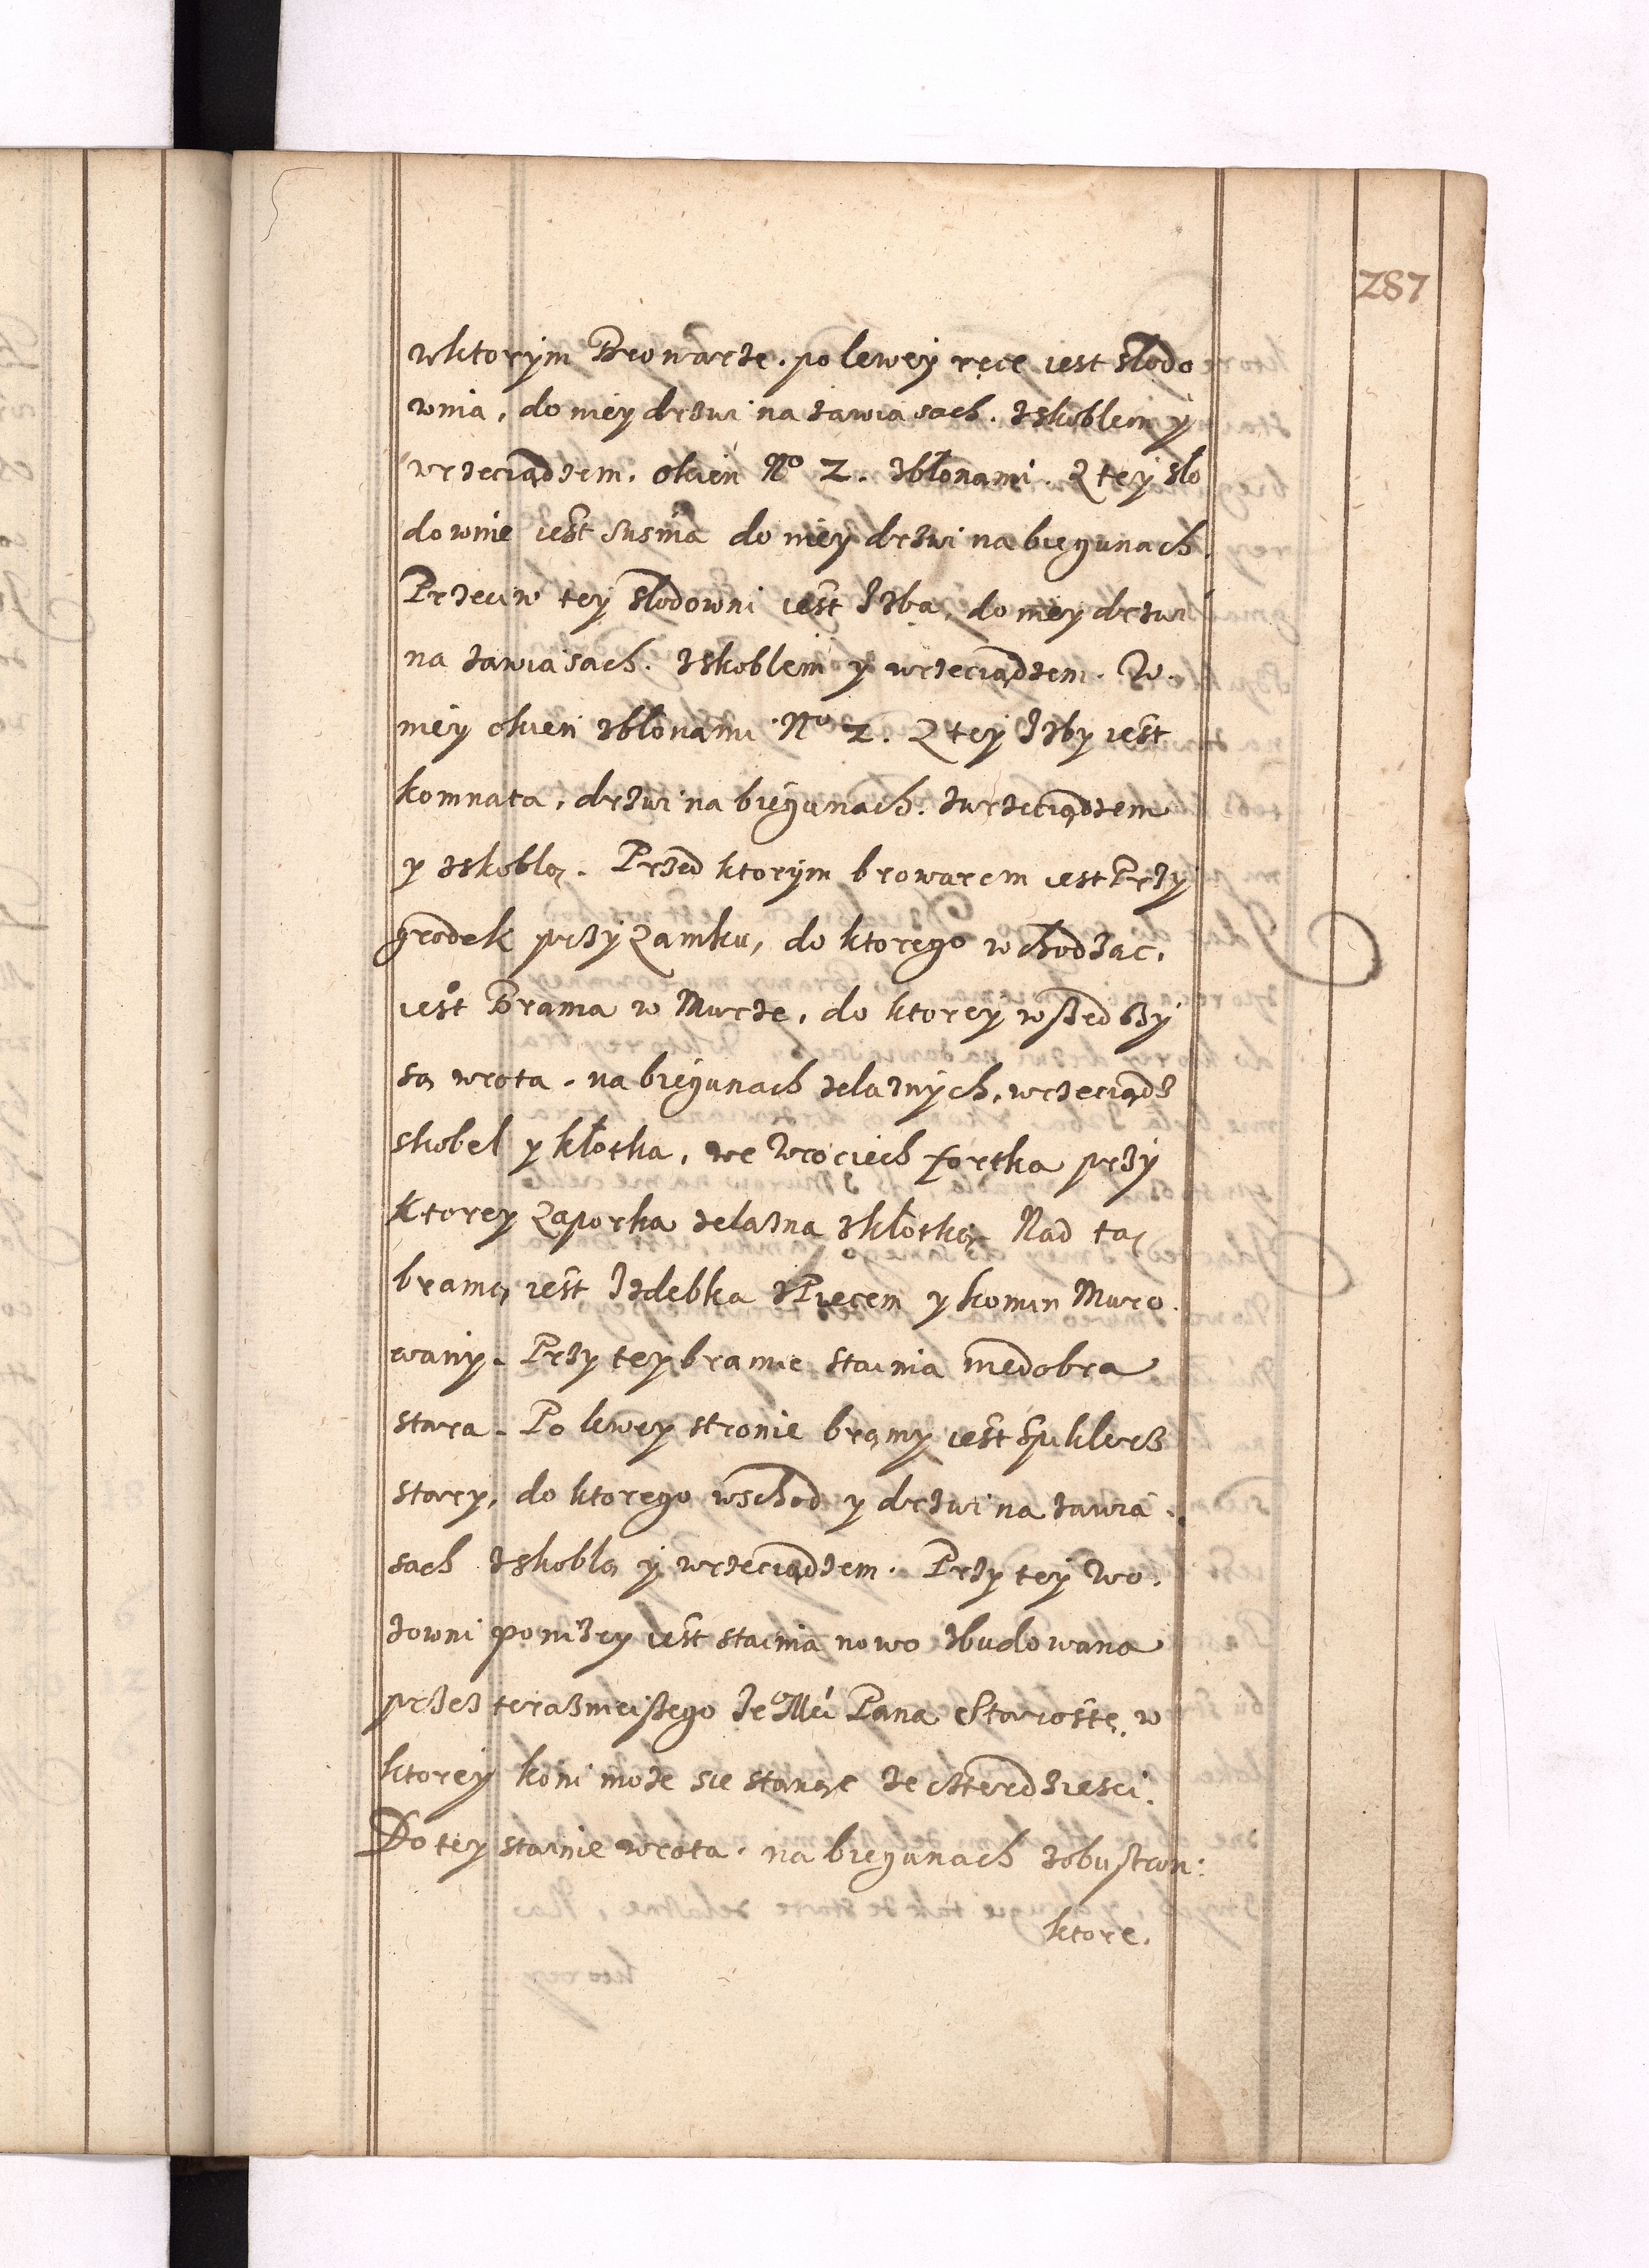 287
wktorym Browarze. po lewey ręce iest słodo
wnia, do niey drzwi na zawiasach. zskoblem y
wrzeciądzem. okien No 2. zbłonami. Z tey sło
downie iest susnia do niey drzwi na biegunach.
Przeciw tey słodowni iest Izba, do niey drzwi
na zawiasach. zskoblem y wrzeciądzem. W.
niey okien zbłonami No 2. Z tey Izby iest
komnata, drzwi na biegunach. zwrzeciądzem
y zskoblą. Przed ktorym browarem iest Przy
grodek przy Zamku, do ktorego wchodząc.
iest Brama w Murze, do ktorey wszedszy
są wrota. na biegunach zelaznych, wrzeciądz
skobel y kłotka, we wrociech fortka przy
ktorey Zaporka zelazna zkłotką. Nad tą
bramą iest Izdebka zPiecem y komin Muro.
wany. Przy tey bramie stainia niedobra
stara. Po lewey stronie bramy iest Spiklerz
stary, do ktorego wschod y drzwi na zawia.
sach zskoblą y wrzeciądzem. Przy tey Wo.
zowni ponizey iest stainia nowo zbudowana
przez teraznieiszego Je Mci Pana Starostę, w
ktorey koni moze sie stanąc ze czterdziesci.
Do tey stainie wrota. na biegunach zobustron:
ktore.